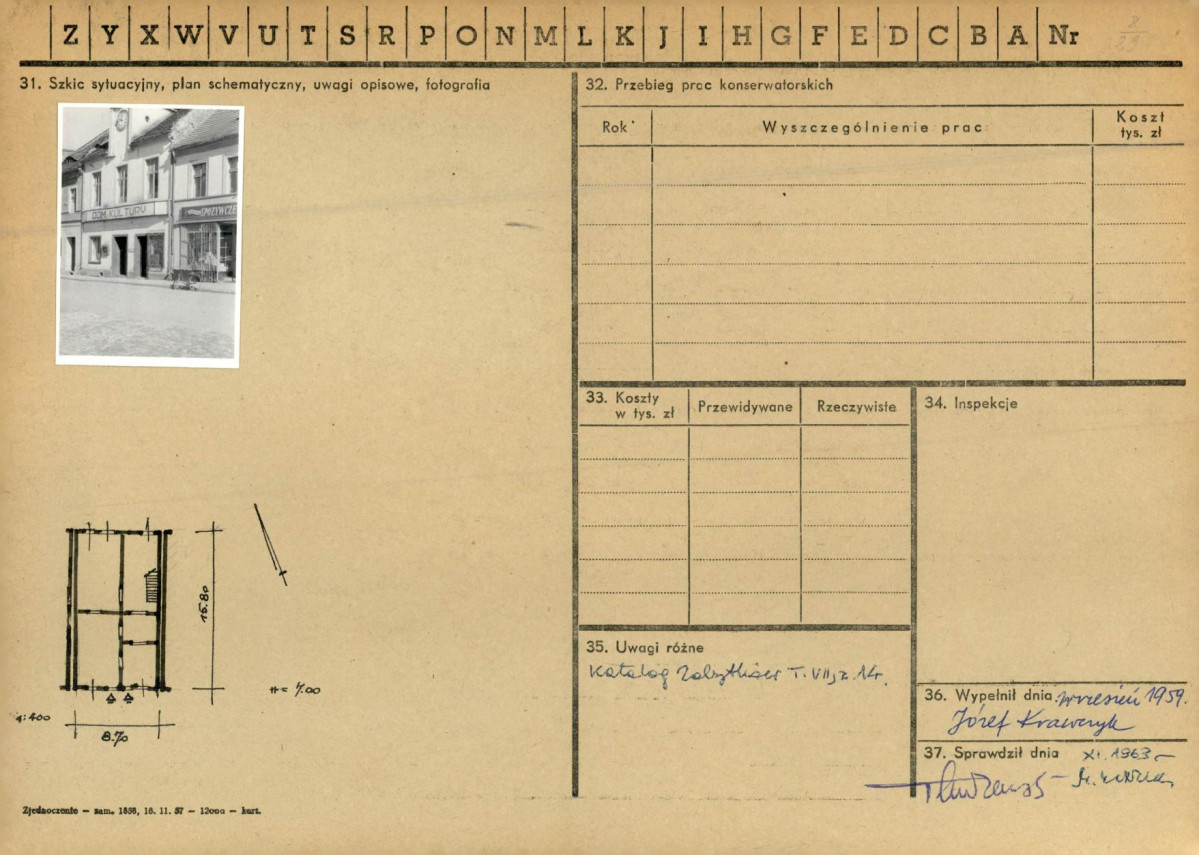 Z Y X W V U T S R P O N M L K J I H G F E D C B A Nr
31. Szkic sytuacyjny, plan schematyczny, uwagi opisowe, fotografia
DOM KULTURY
SPOŻYWCZE
15.80
H = 7.00
1:400
8.70
Zjednoczenie — sam. 1858, 16. 11. 57 — 12000 — kart.
32. Przebieg prac konserwatorskich
Rok
Wyszczególnienie prac
Koszt
tys. zł
33. Koszty
w tys. zł
Przewidywane
Rzeczywiste
34. Inspekcje
35. Uwagi różne
Katalog Zabytków T. VII, z. 14.
36. Wypełnił dnia wrzesień 1959.
Józef Krawczyk
37. Sprawdził dnia XI. 1963